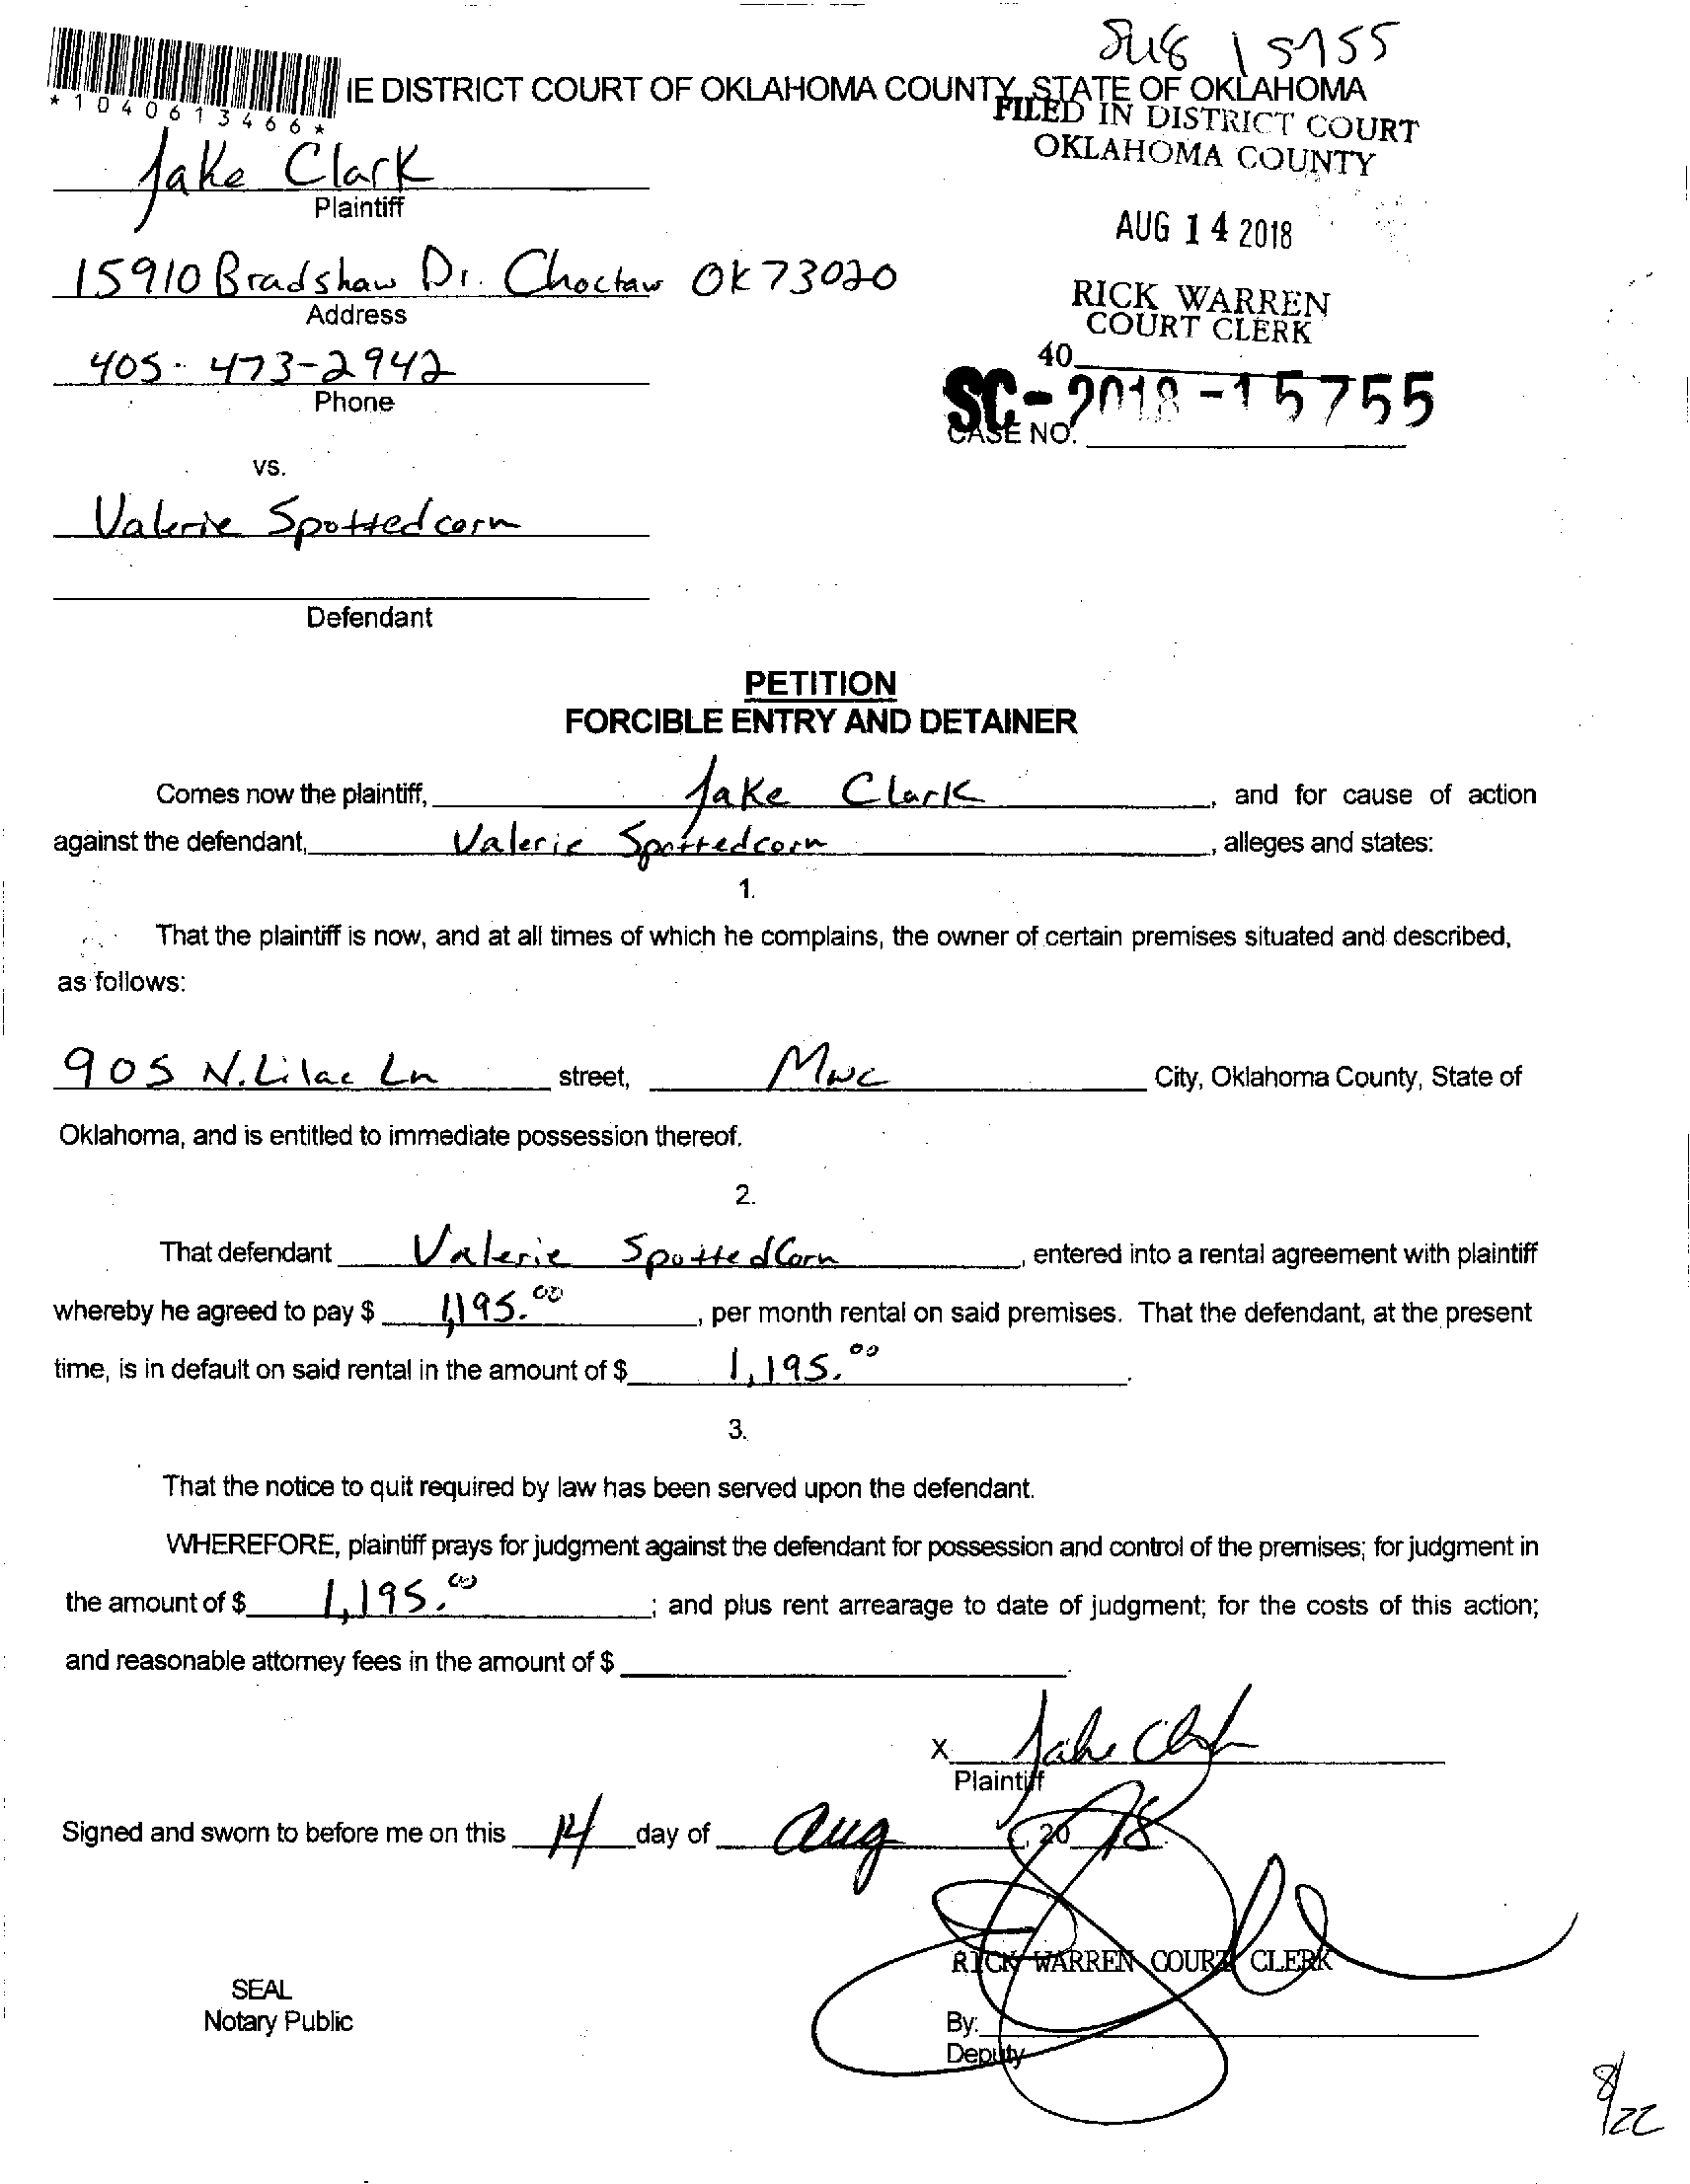 IE DISTRICT COURT OF OKLAHOMA COUNTY, STATE OF OKLAHOMA
*1040613466*
FILED IN DISTRICT COURT
OKLAHOMA COUNTY
Jake Clark
Plaintiff
AUG 14 2018
15910 Bradshaw Dr. Choctaw OK 73020
Address
RICK WARREN
COURT CLERK
405-473-2942
Phone
40
SC-2018-15755
CASE NO.
vs.
Valerie Spottedcorn
Defendant
PETITION
FORCIBLE ENTRY AND DETAINER
Comes now the plaintiff, Jake Clark, and for cause of action
against the defendant, Valerie Spottedcorn, alleges and states:
1.
That the plaintiff is now, and at all times of which he complains, the owner of certain premises situated and described,
as follows:
905 N. Lilac Ln street, MWC City, Oklahoma County, State of
Oklahoma, and is entitled to immediate possession thereof.
2.
That defendant Valerie SpottedCorn, entered into a rental agreement with plaintiff
whereby he agreed to pay $ 1,195.00, per month rental on said premises. That the defendant, at the present
time, is in default on said rental in the amount of $ 1,195.00.
3.
That the notice to quit required by law has been served upon the defendant.
WHEREFORE, plaintiff prays for judgment against the defendant for possession and control of the premises; for judgment in
the amount of $ 1,195.00; and plus rent arrearage to date of judgment; for the costs of this action;
and reasonable attorney fees in the amount of $
X Jake Clark
Plaintiff
Signed and sworn to before me on this 14 day of Aug, 2018.
RICK WARREN COURT CLERK
SEAL
Notary Public
By:
Deputy
8/22